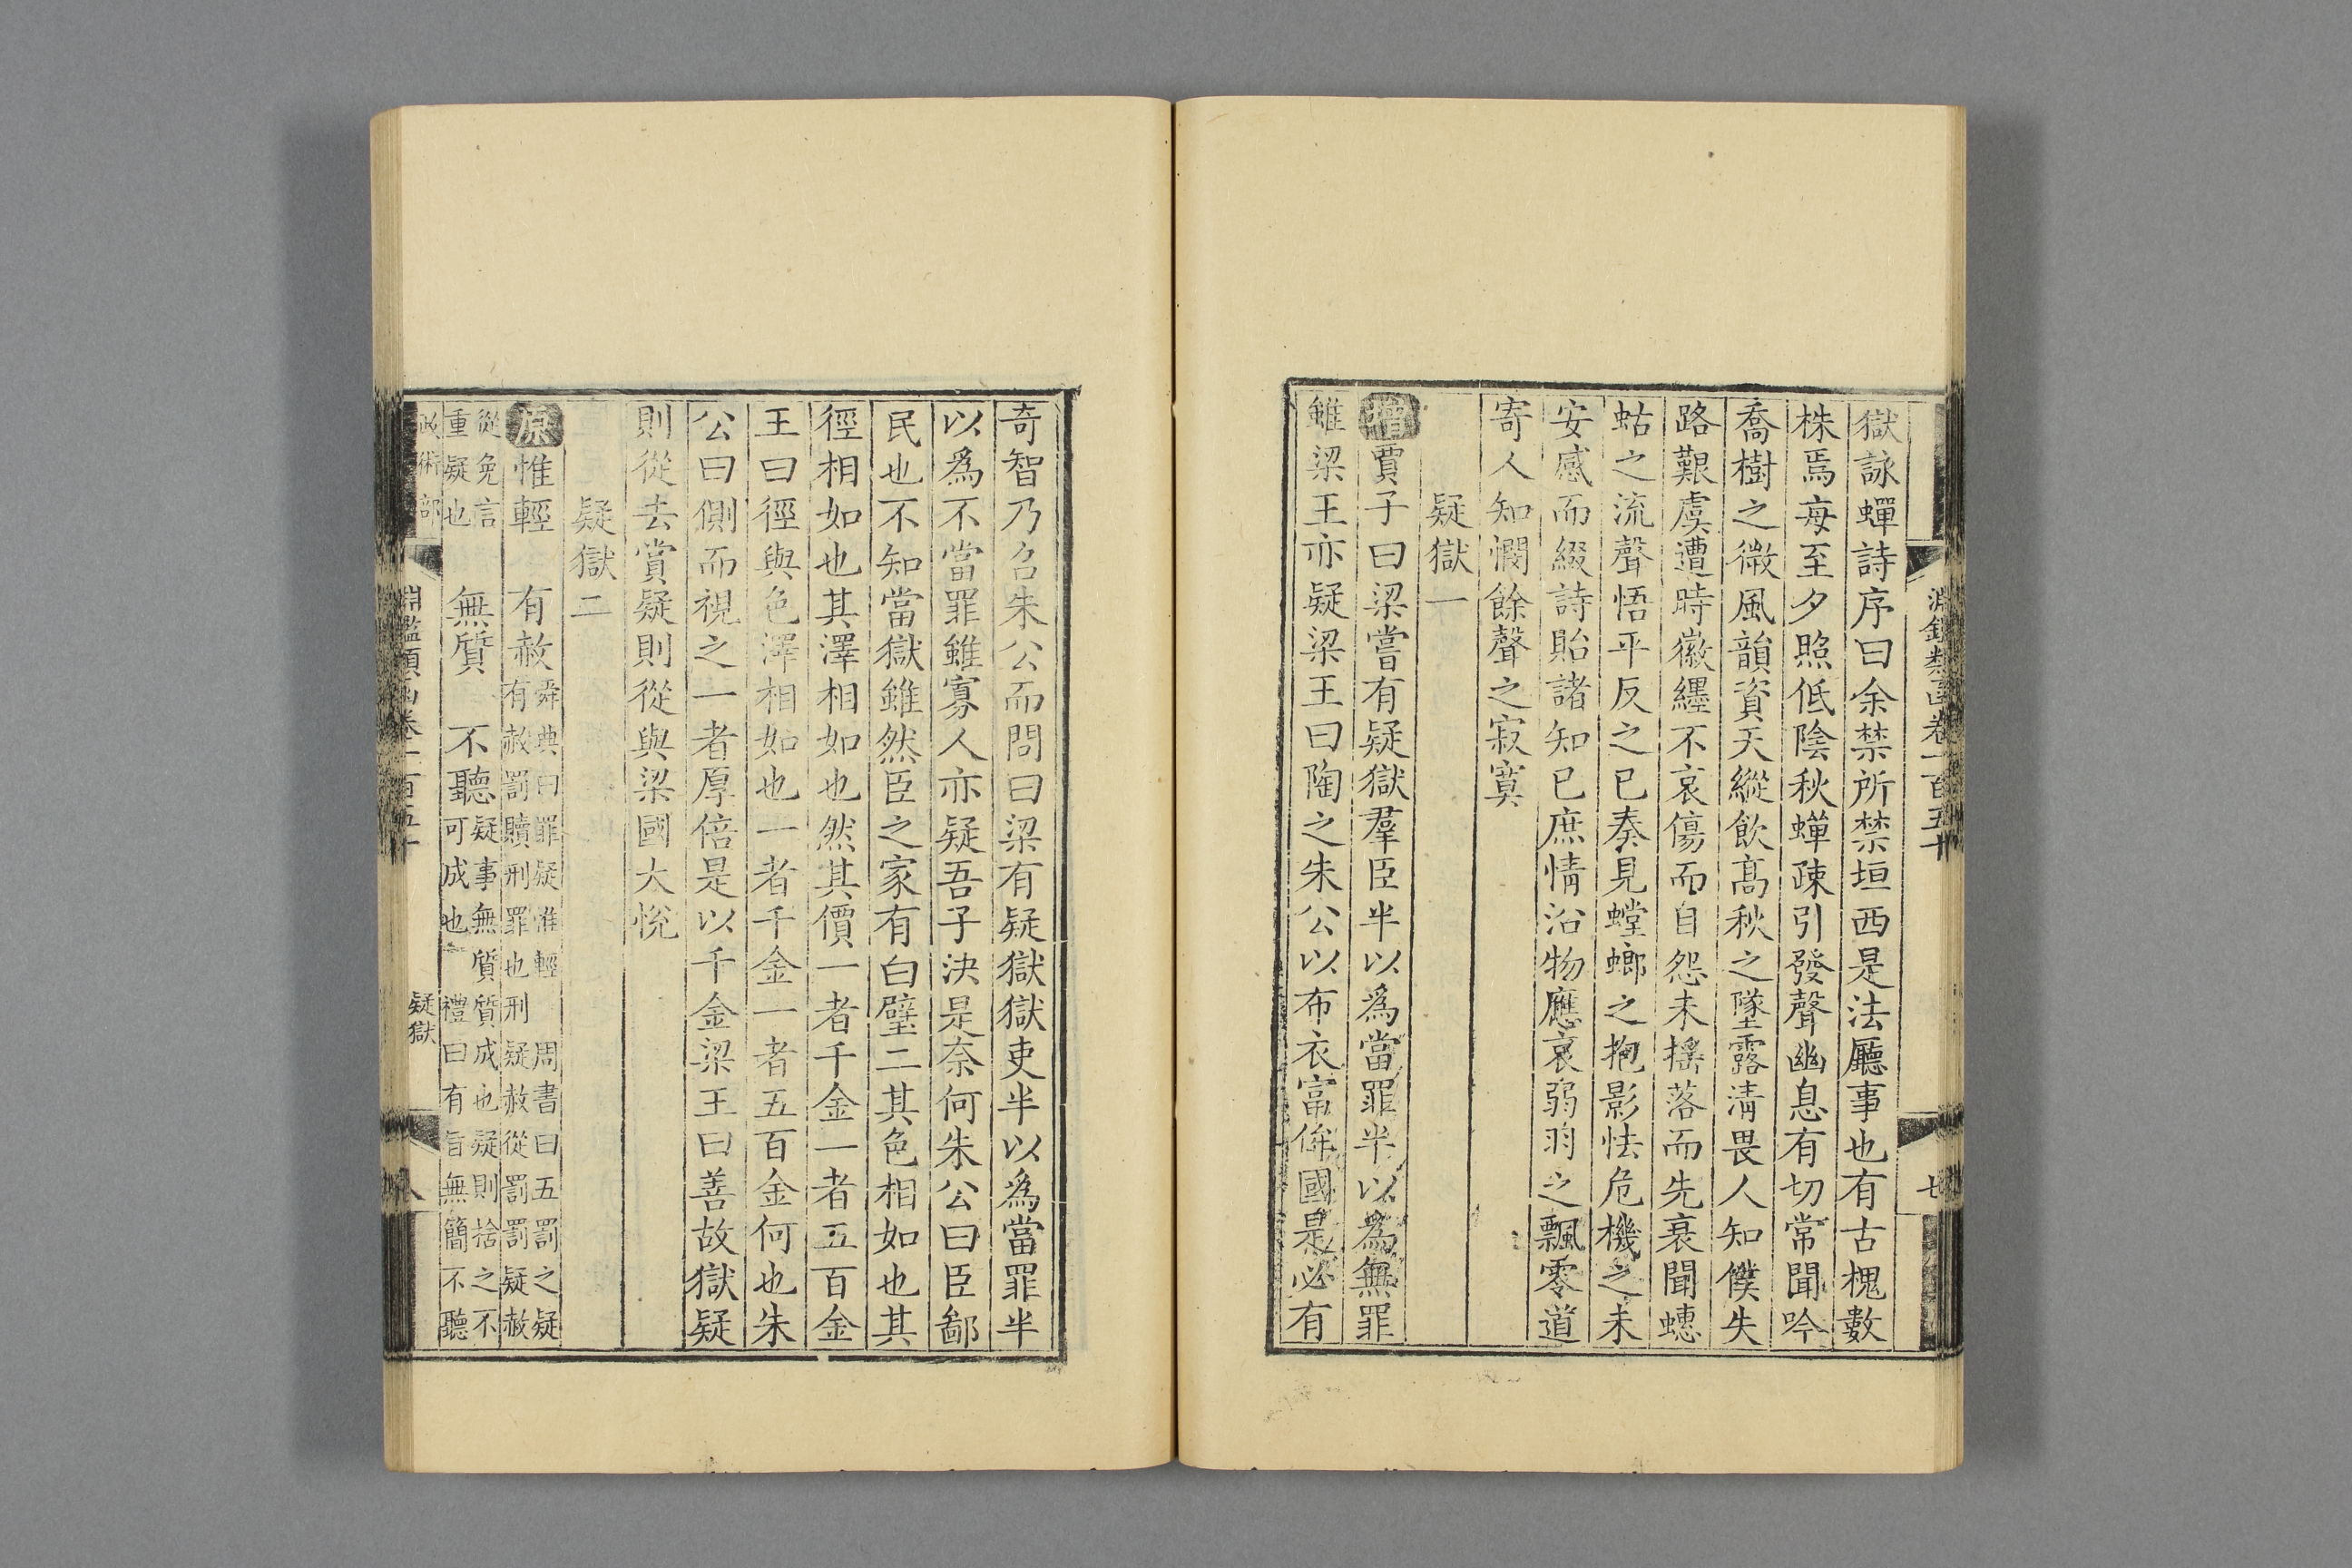 獄詠蟬詩序曰余禁所禁垣西是法廳事也有古槐數
株焉每至夕照低陰秋蟬疎引發聲幽息有切常聞吟
喬樹之微風韻資天縱飲高秋之墜露清畏人知僕失
路艱虞遭時徽纆不哀傷而自怨未搖落而先衰聞蟪
蛄之流聲悟平反之已奏見螳螂之抱影怯危機之未
安感而綴詩貽諸知已庶情沿物應哀弱羽之飄零道
寄人知憫餘聲之寂寞
疑獄一
增賈子曰梁嘗有疑獄羣臣半以爲當罪半以爲無罪
雖梁王亦疑梁王曰陶之朱公以布衣富侔國是必有
奇智乃召朱公而問曰梁有疑獄獄吏半以爲當罪半
以爲不當罪雖寡人亦疑吾子決是奈何朱公曰臣鄙
民也不知當獄雖然臣之家有白璧二其色相如也其
徑相如也其澤相如也然其價一者千金一者五百金
王曰徑與色澤相如也一者千金一者五百金何也朱
公曰側而視之一者厚倍是以千金梁王曰善故獄疑
則從去賞疑則從與梁國大悅
疑獄二
原惟輕 有赦 舜典曰罪疑惟輕 周書曰五罰之疑
有赦罰贖刑罪也刑疑赦從罰罰疑赦
從免言
重疑也 無質 不聽 疑事無質質成也疑則捨之不
可成也 禮曰有旨無簡不聽
政術部
淵鑑類函卷一百五十
疑獄
八
淵鑑類函卷一百五十
七